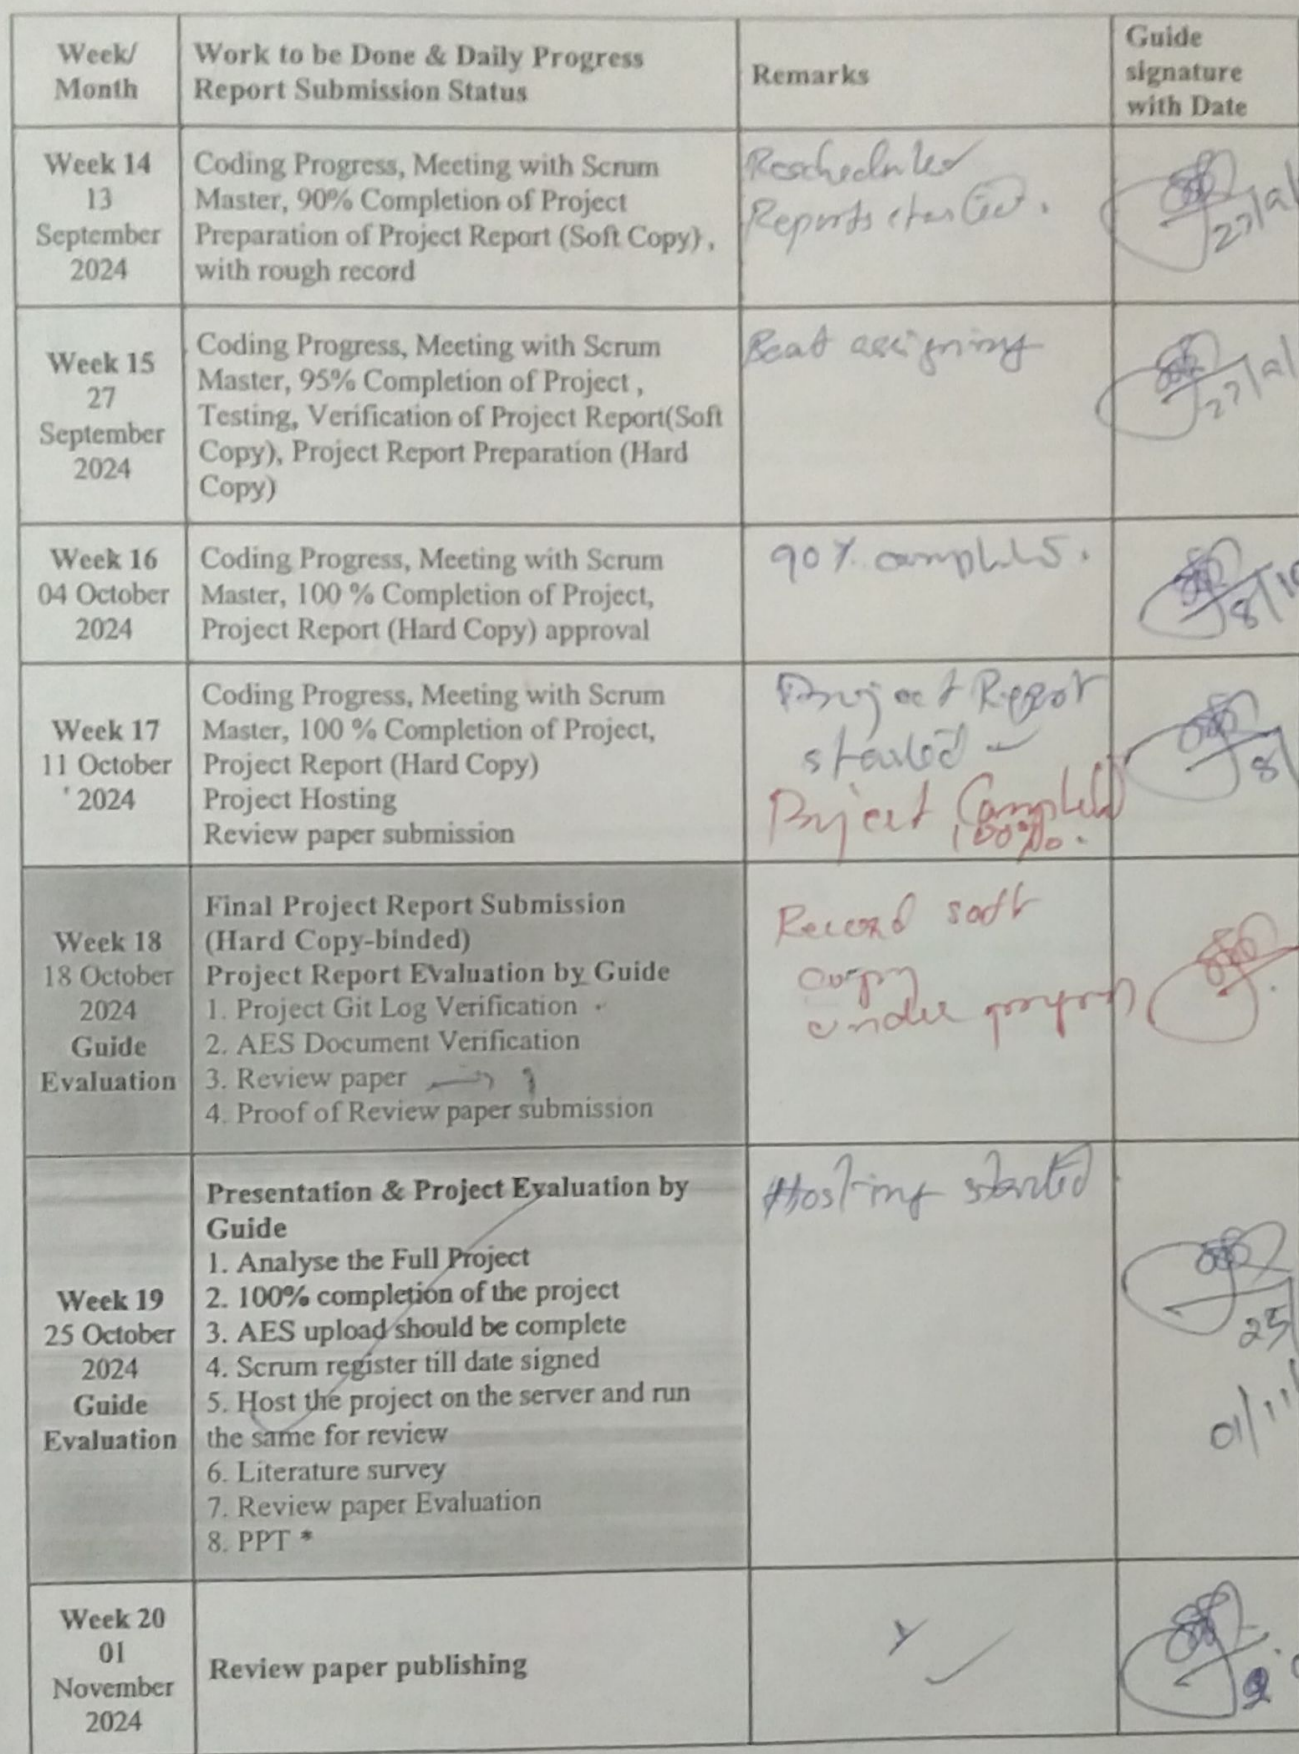 Week/
Month
Work to be Done & Daily Progress
Report Submission Status
Remarks
Guide
signature
with Date
Week 14
13
September
2024
Coding Progress, Meeting with Scrum
Master, 90% Completion of Project
Preparation of Project Report (Soft Copy) ,
with rough record
Reports started.
27/9/
Week 15
27
September
2024
Coding Progress, Meeting with Scrum
Master, 95% Completion of Project ,
Testing, Verification of Project Report(Soft
Copy), Project Report Preparation (Hard
Copy)
assigning
27/9/
Week 16
04 October
2024
Coding Progress, Meeting with Scrum
Master, 100 % Completion of Project,
Project Report (Hard Copy) approval
90%
8/10
Week 17
11 October
2024
Coding Progress, Meeting with Scrum
Master, 100 % Completion of Project,
Project Report (Hard Copy)
Project Hosting
Review paper submission
Project Report
started
Project Completed
100%.
8/
Week 18
18 October
2024
Guide
Evaluation
Final Project Report Submission
(Hard Copy-binded)
Project Report Evaluation by Guide
1. Project Git Log Verification
2. AES Document Verification
3. Review paper
4. Proof of Review paper submission
Record soft
copy
under
Week 19
25 October
2024
Guide
Evaluation
Presentation & Project Evaluation by
Guide
1. Analyse the Full Project
2. 100% completion of the project
3. AES upload should be complete
4. Scrum register till date signed
5. Host the project on the server and run
the same for review
6. Literature survey
7. Review paper Evaluation
8. PPT *
Hosting started
25/
01/11/
Week 20
01
November
2024
Review paper publishing